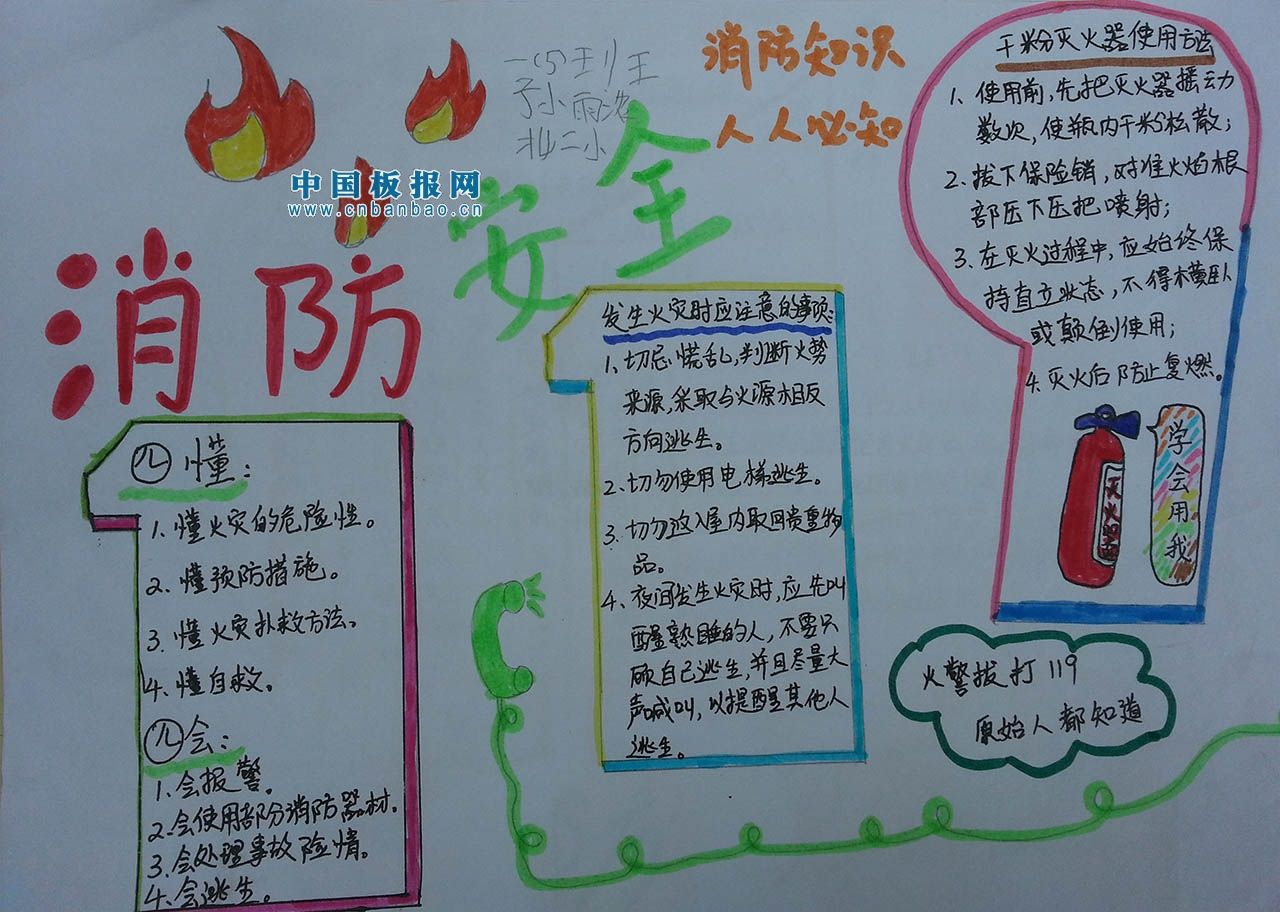 消防安全
消防知识
人人必知
中国板报网
www.cnbanbao.cn
四懂：
1、懂火灾的危险性。
2、懂预防措施。
3、懂火灾扑救方法。
4、懂自救。
四会：
1、会报警。
2、会使用部分消防器材。
3、会处理事故险情。
4、会逃生。
发生火灾时应注意的事项：
1、切忌慌乱,判断火势
来源,采取与火源相反
方向逃生。
2、切勿使用电梯逃生。
3、切勿返入屋内取回贵重物
品。
4、夜间发生火灾时,应先叫
醒熟睡的人,不要只
顾自己逃生,并且尽量大
声喊叫,以提醒其他人
逃生。
干粉灭火器使用方法
1、使用前,先把灭火器摇动
数次,使瓶内干粉松散；
2、拔下保险销,对准火焰根
部压下压把喷射；
3、在灭火过程中,应始终保
持直立状态,不得横卧
或颠倒使用；
4、灭火后防止复燃。
灭火器
学会用我
火警拔打119
原始人都知道